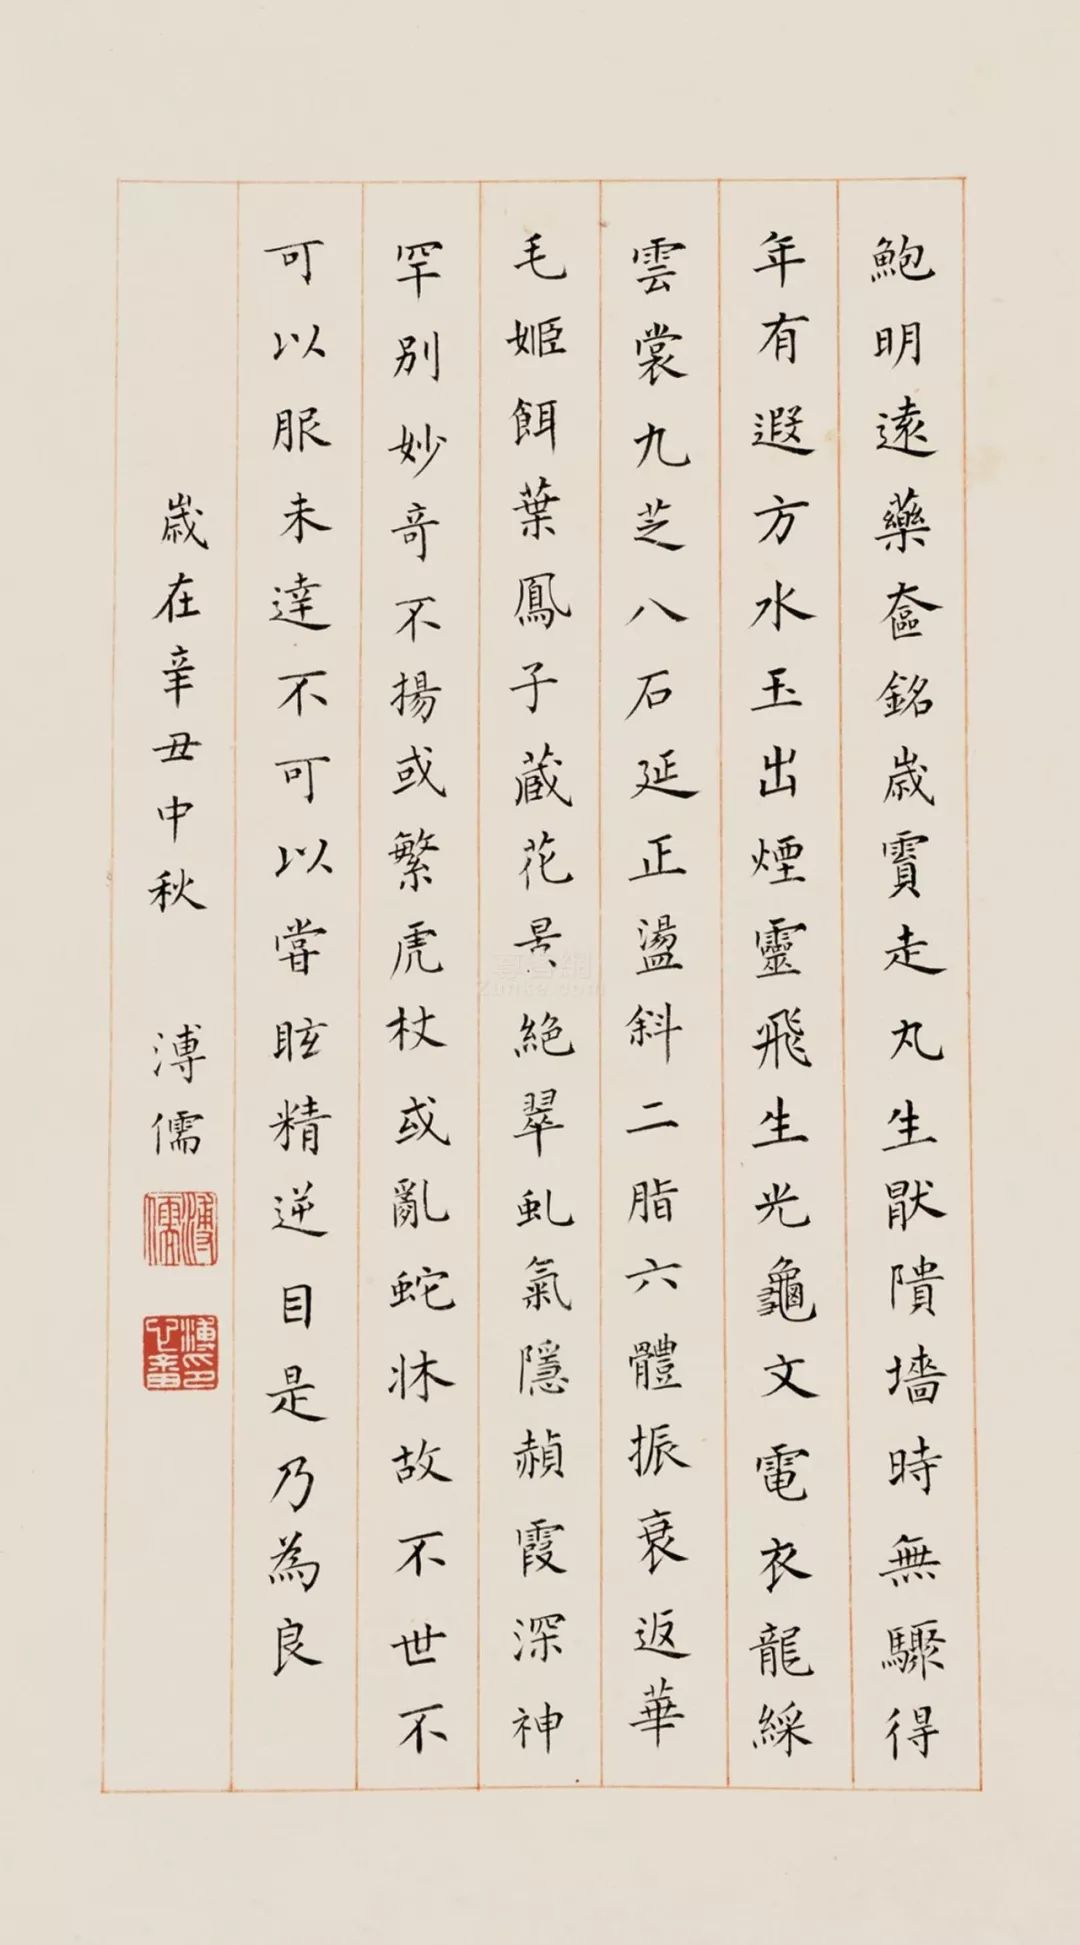 鮑明遠藥奩銘歲霣走丸生厭隤墻時無驟得
年有遐方水玉出煙靈飛生光龜文電衣龍綵
雲裳九芝八石延正盪斜二脂六體振衰返華
毛姬餌葉鳳子藏花景絕翠虬氣隱赬霞深神
罕別妙奇不揚或繁虎杖或亂蛇牀故不世不
可以服未達不可以嘗眩精逆目是乃為良
歲在辛丑中秋 溥儒
溥儒
溥印心畬
Zunke.com